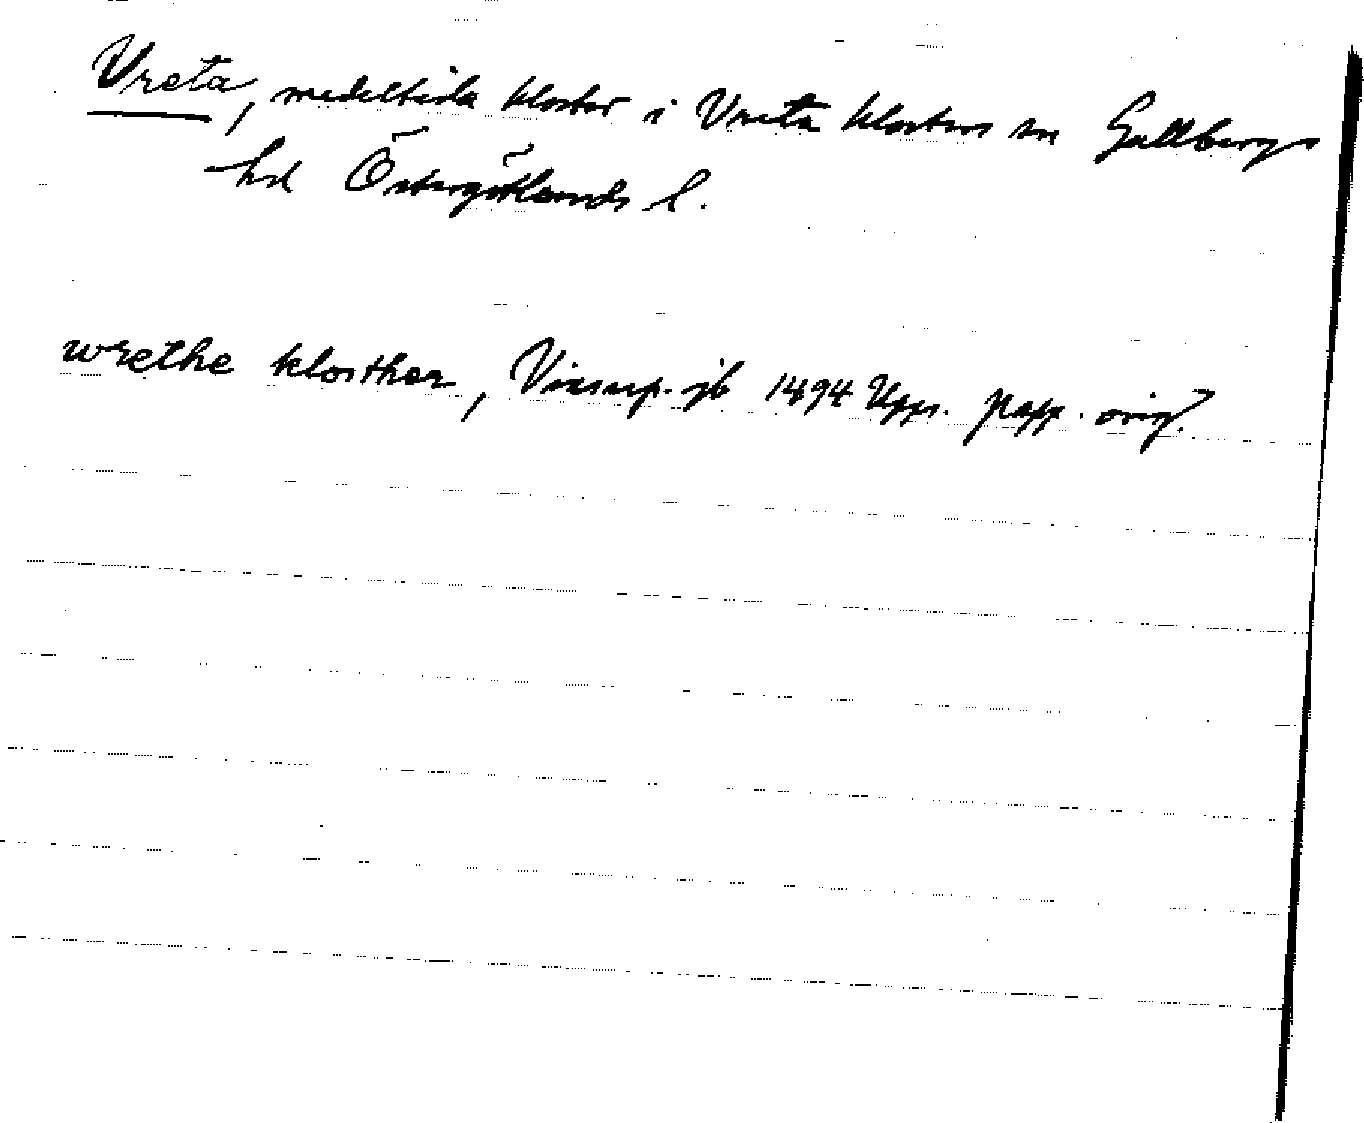 Vreta, medeltida kloster i Vreta klosters sn Gullbergs
hd Östergötlands l.
wrethe closther, Vinsarp. jb 1494 Upps. papp. orig?